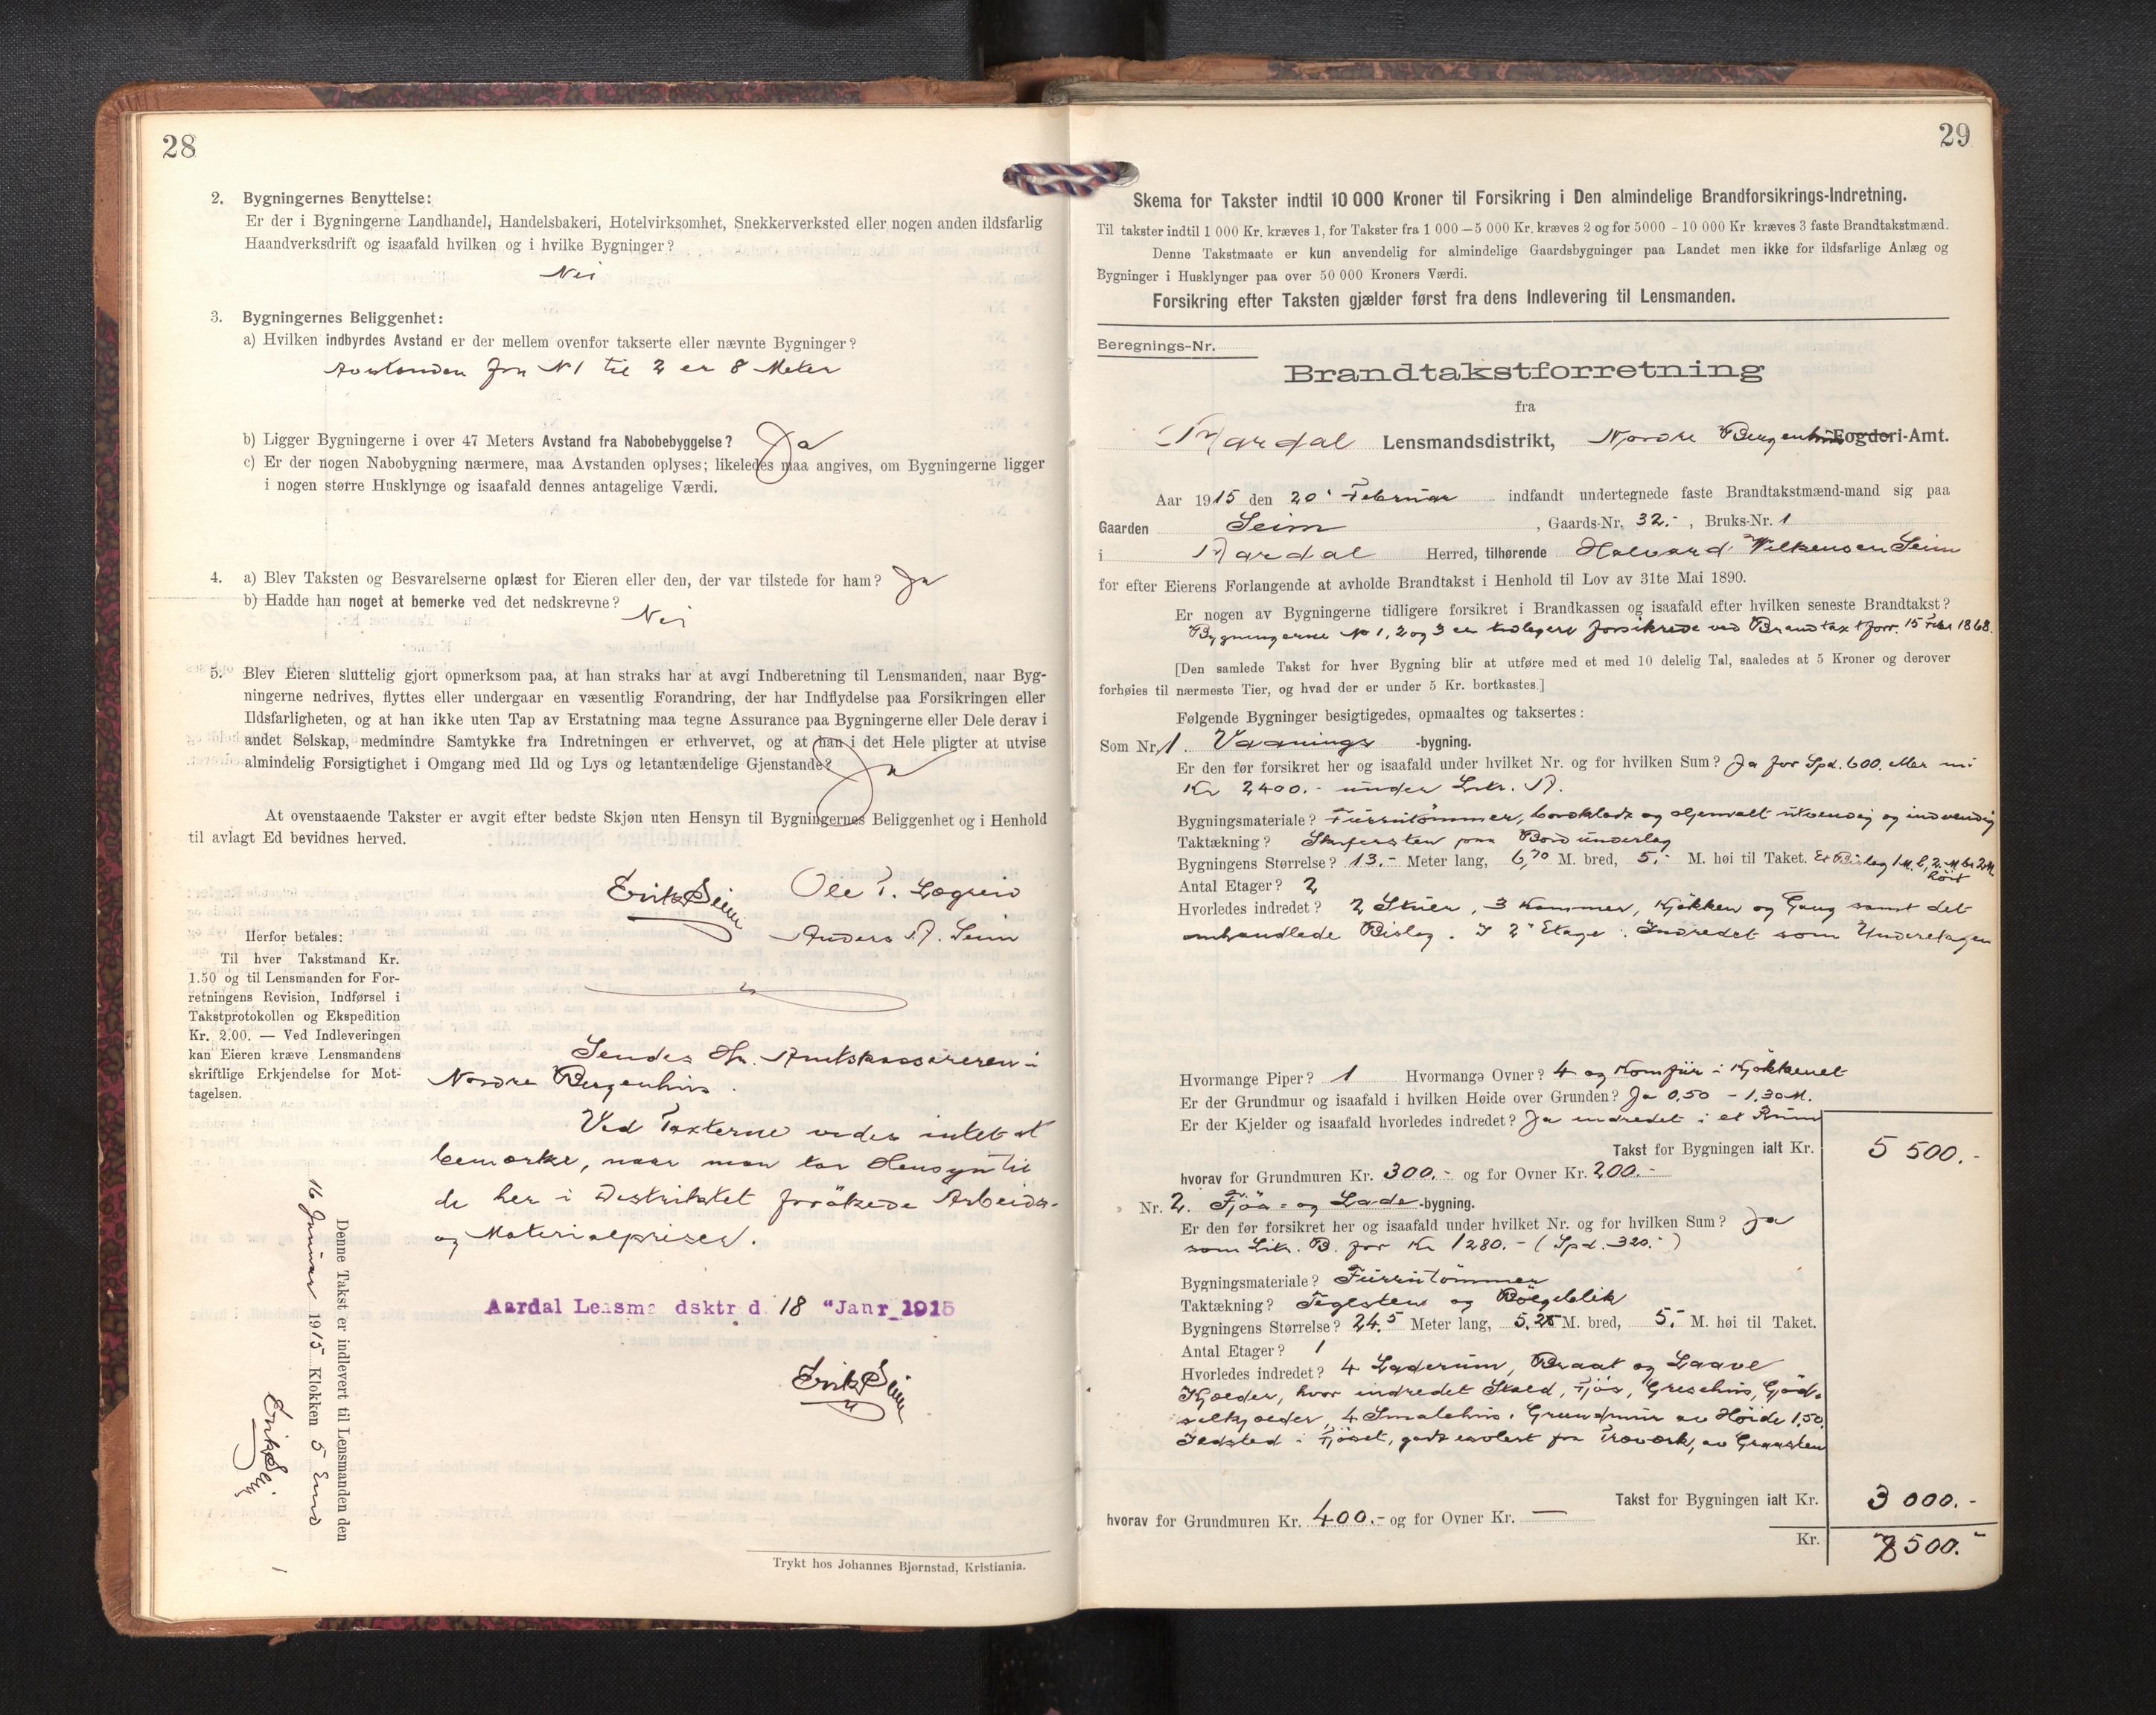 28
2. Bygningernes Benyttelse:
Er der i Bygningerne Landhandel, Handelsbakeri, Hotelvirksomhet, Snekkerverksted eller nogen anden ildsfarlig
Haandverksdrift og isaafald hvilken og i hvilke Bygninger?
Nei
3. Bygningernes Beliggenhet:
a) Hvilken indbyrdes Avstand er der mellem ovenfor takserte eller nævnte Bygninger?
Avstanden fra N 1 til 2 er 8 Meter
b) Ligger Bygningerne i over 47 Meters Avstand fra Nabobebyggelse? Ja
c) Er der nogen Nabobygning nærmere, maa Avstanden oplyses; likeledes maa angives, om Bygningerne ligger
i nogen større Husklynge og isaafald dennes antagelige Værdi.
4. a) Blev Taksten og Besvarelserne oplæst for Eieren eller den, der var tilstede for ham? Ja
b) Hadde han noget at bemerke ved det nedskrevne?
Nei
5. Blev Eieren sluttelig gjort opmerksom paa, at han straks har at avgi Indberetning til Lensmanden, naar Byg-
ningerne nedrives, flyttes eller undergaar en væsentlig Forandring, der har Indflydelse paa Forsikringen eller
Ildsfarligheten, og at han ikke uten Tap av Erstatning maa tegne Assurance paa Bygningerne eller Dele derav i
andet Selskap, medmindre Samtykke fra Indretningen er erhvervet, og at han i det Hele pligter at utvise
almindelig Forsigtighet i Omgang med Ild og Lys og letantændelige Gjenstande? Ja
At ovenstaaende Takster er avgit efter bedste Skjøn uten Hensyn til Bygningernes Beliggenhet og i Henhold
til avlagt Ed bevidnes herved.
Erik Seim Ole T. Lægreid
Anders A. Seim
Herfor betales:
Til hver Takstmand Kr.
1.50 og til Lensmanden for For-
retningens Revision, Indførsel i
Takstprotokollen og Ekspedition
Kr. 2.00. — Ved Indleveringen
kan Eieren kræve Lensmandens
skriftlige Erkjendelse for Mot-
tagelsen.
Sendes Hr. Amtskassereren i
Nordre Bergenhus.
Ved Taxterne vides intet at
bemærke, naar man tar Hensyn til
de her i Distriktet forøkede Arbeids-
og Materialpriser.
Aardal Lensma dsktr d. 18 "Janr 1915
Erik Seim
Denne Takst er indlevert til Lensmanden den
16 Januar 1915 Klokken 5 Emd
Erik Seim
Trykt hos Johannes Bjørnstad, Kristiania.
29
Skema for Takster indtil 10 000 Kroner til Forsikring i Den almindelige Brandforsikrings-Indretning.
Til takster indtil 1 000 Kr. kræves 1, for Takster fra 1 000 — 5 000 Kr. kræves 2 og for 5000 - 10 000 Kr kræves 3 faste Brandtakstmænd.
Denne Takstmaate er kun anvendelig for almindelige Gaardsbygninger paa Landet men ikke for ildsfarlige Anlæg og
Bygninger i Husklynger paa over 50 000 Kroners Værdi.
Forsikring efter Taksten gjælder først fra dens Indlevering til Lensmanden.
Beregnings-Nr.
Brandtakstforretning
fra
Aardal Lensmandsdistrikt, Nordre Bergenhus Fogderi-Amt.
Aar 1915 den 20' Februar indfandt undertegnede faste Brandtakstmænd-mand sig paa
Gaarden Seim, Gaards-Nr. 32.-, Bruks-Nr. 1
i Aardal Herred, tilhørende Halvard Vilkensen Seim
for efter Eierens Forlangende at avholde Brandtakst i Henhold til Lov av 31te Mai 1890.
Er nogen av Bygningerne tidligere forsikret i Brandkassen og isaafald efter hvilken seneste Brandtakst?
Bygningerne No 1, 2 og 3 er tidligere forsikrede ved Brandtaxtforr. 15 Febr 1868.
[Den samlede Takst for hver Bygning blir at utføre med et med 10 delelig Tal, saaledes at 5 Kroner og derover
forhøies til nærmeste Tier, og hvad der er under 5 Kr. bortkastes.]
Følgende Bygninger besigtigedes, opmaaltes og taksertes:
Som Nr. 1. Vaanings -bygning.
Er den før forsikret her og isaafald under hvilket Nr. og for hvilken Sum? Ja for Spd. 600. eller nu
Kr 2400.- under Litr. A.
Bygningsmateriale? Furutømmer, bordklædt og oljemalt utvendig og indvendig
Taktækning? Skifersten paa Bord underlag
Bygningens Størrelse? 13.- Meter lang, 6,70 M. bred, 5.- M. høi til Taket. Et Bislag 1 M. l, 2 M br 2 M høit
Antal Etager? 2
Hvorledes indredet? 2 Stuer, 3 Kammer, Kjøkken og Gang samt det
omhandlede Bislag. I 2' Etage: Indredet som Underetagen
Hvormange Piper? 1 Hvormange Ovner? 4 og Komfur i Kjøkkenet
Er der Grundmur og isaafald i hvilken Høide over Grunden? Ja 0,50 - 1,30 M.
Er der Kjelder og isaafald hvorledes indredet? Ja indredet i et Rum
Takst for Bygningen ialt Kr. 5 500.-
hvorav for Grundmuren Kr. 300.- og for Ovner Kr. 200.-
Nr. 2. Fjøs- og Lade -bygning.
Er den før forsikret her og isaafald under hvilket Nr. og for hvilken Sum? Ja
som Litr. B. for Kr 1280.- (Spd. 320.-)
Bygningsmateriale? Furutømmer
Taktækning? Teglsten og Bølgeblik
Bygningens Størrelse? 24.5 Meter lang, 5,25 M. bred, 5.- M. høi til Taket.
Antal Etager? 1
Hvorledes indredet? 4 Laderum, Braat og Laave
Kjælder, hvor indredet Stald, Fjøs, Grisehus, Gjød-
selkjælder, 4 Smalehus. Grundmur av Høide 1,50.
Ildsted i Fjøset, godt isolert fra Træværk, av Graasten
Takst for Bygningen ialt Kr. 3 000.-
hvorav for Grundmuren Kr. 400.- og for Ovner Kr. —
Kr. 8500.-